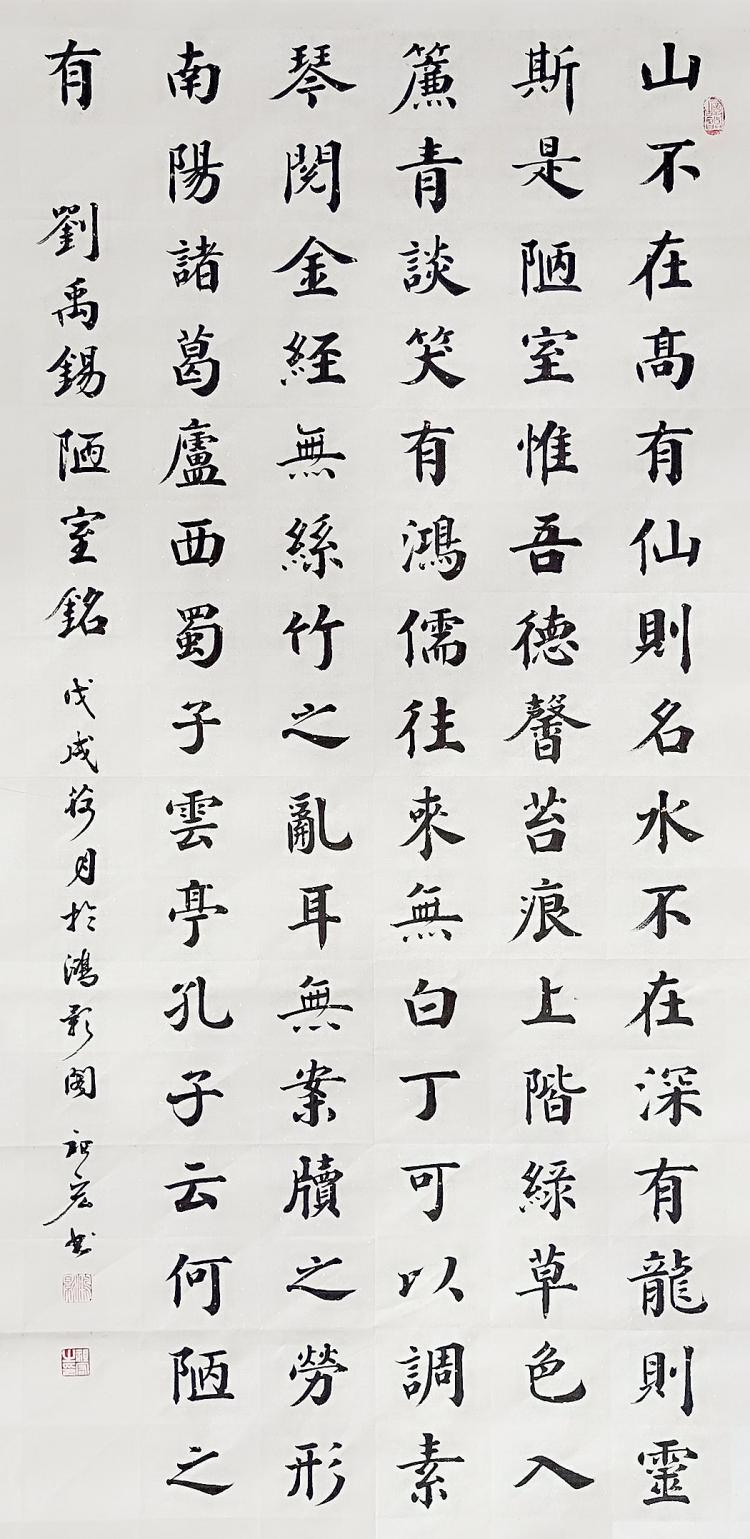 山不在高有仙則名水不在深有龍則靈
斯是陋室惟吾德馨苔痕上階綠草色入
簾青談笑有鴻儒往來無白丁可以調素
琴閱金經無絲竹之亂耳無案牘之勞形
南陽諸葛廬西蜀子雲亭孔子云何陋之
有 劉禹錫陋室銘 戊戌荷月於鴻影閣 宏书